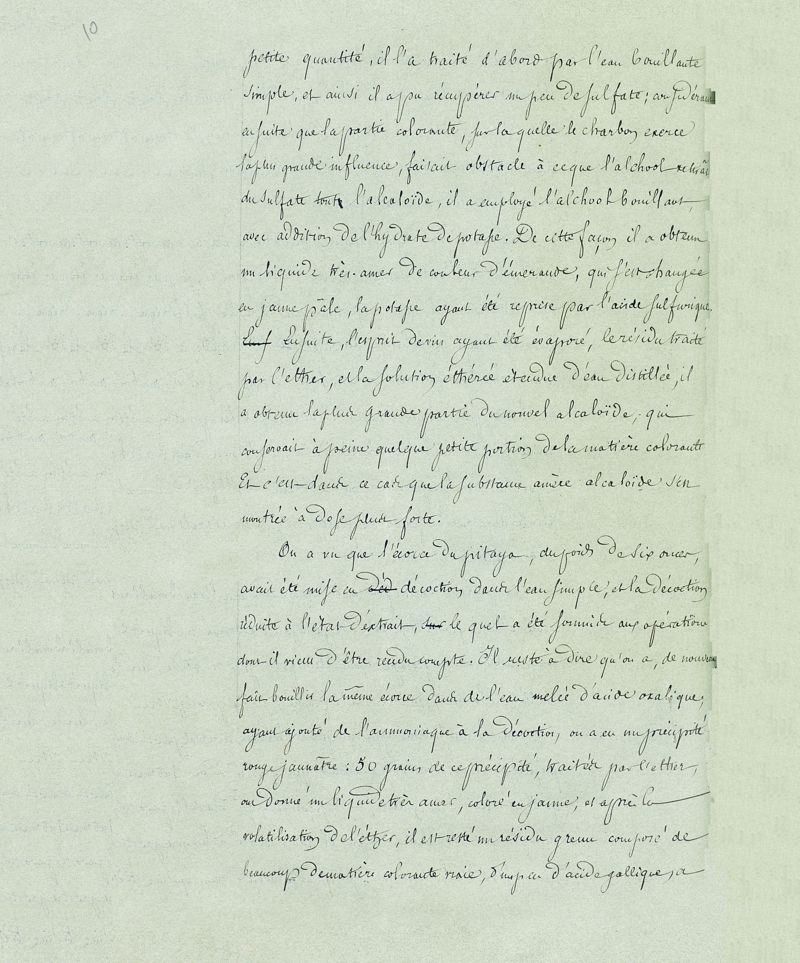 10
petite quantité, il l'a traité d'abord par l'eau bouillante
simple, et ainsi il a pu récupérer un peu de sulfate; considérant
ensuite que la partie colorante, sur laquelle le charbon exerce
la plus grande influence, faisait obstacle à ce que l'alchool
du sulfate l'alcaloïde, il a employé l'alchool bouillant,
avec addition de l'hydrate de potasse. De cette façon il a obtenu
un liquide très-amer de couleur d'émeraude, qui s'est changée
en jaune pâle, la potasse ayant été reprise par l'acide sulfurique.
Ensuite, l'esprit de vin ayant été évaporé, le résidu traité
par l'ether, et la solution éthérée étendue d'eau distillée, il
a obtenu la plus grande partie du nouvel alcaloïde, qui
conservait à peine quelque petite portion de la matière colorante
Et c'est dans ce cas que la substance amère alcaloïde s'est
montrée à dose plus forte.
On a vu que l'écorce du pitaya, du poids de six onces,
avait été mise en décoction dans l'eau simple, et la décoction
réduite à l'état d'extrait, le quel a été soumis aux opérations
dont il vient d'être rendu compte. Il reste à dire qu'on a, de nouveau
fait bouillir la même écorce dans de l'eau melée d'acide oxalique;
ayant ajouté de l'ammoniaque à la décoction, on a eu un précipité
rouge jaunâtre: 50 grains de ce précipité, traités par l'ether,
ont donné un liquide très amer, coloré en jaune, et après la
volatilisation de l'éther, il est resté un résidu grenu composé de
beaucoup de matière colorante vraie, d'un peu d'acide gallique, a